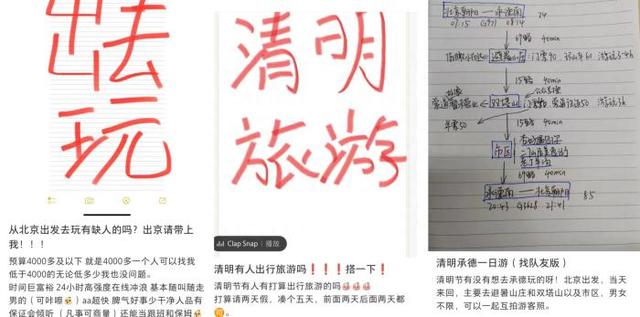 出去
玩
从北京出发去玩有缺人的吗?出京请带上
我!!!
预算4000多及以下 就是4000多一个人可以找我
低于4000的无论低多少我也没问题。
时间巨富裕 24小时高强度在线冲浪 基本随叫随走
男的(可咔嚓)aa超快 脾气好事少干净人品有
保证会倾听(凡事可商量)还能当跟班和保姆
清明
旅游
Clap Snap | 播放
清明有人出行旅游吗❗❗❗搭一下❗
清明节有人打算出行旅游的吗
打算请两天假,凑个五天,前面两天后面两天都
北京朝阳——承德南
07:15 (G97) 08:14
69路 40min
15路 40min
双塔山
15路 40min
市区
69路 40min
承德南——北京朝阳
85
清明承德一日游(找队友版)
清明节有没有想去承德玩的呀!北京出发,当天
来回,主要去避暑山庄和双塔山以及市区,男女
不限,可以一起互拍游客照。